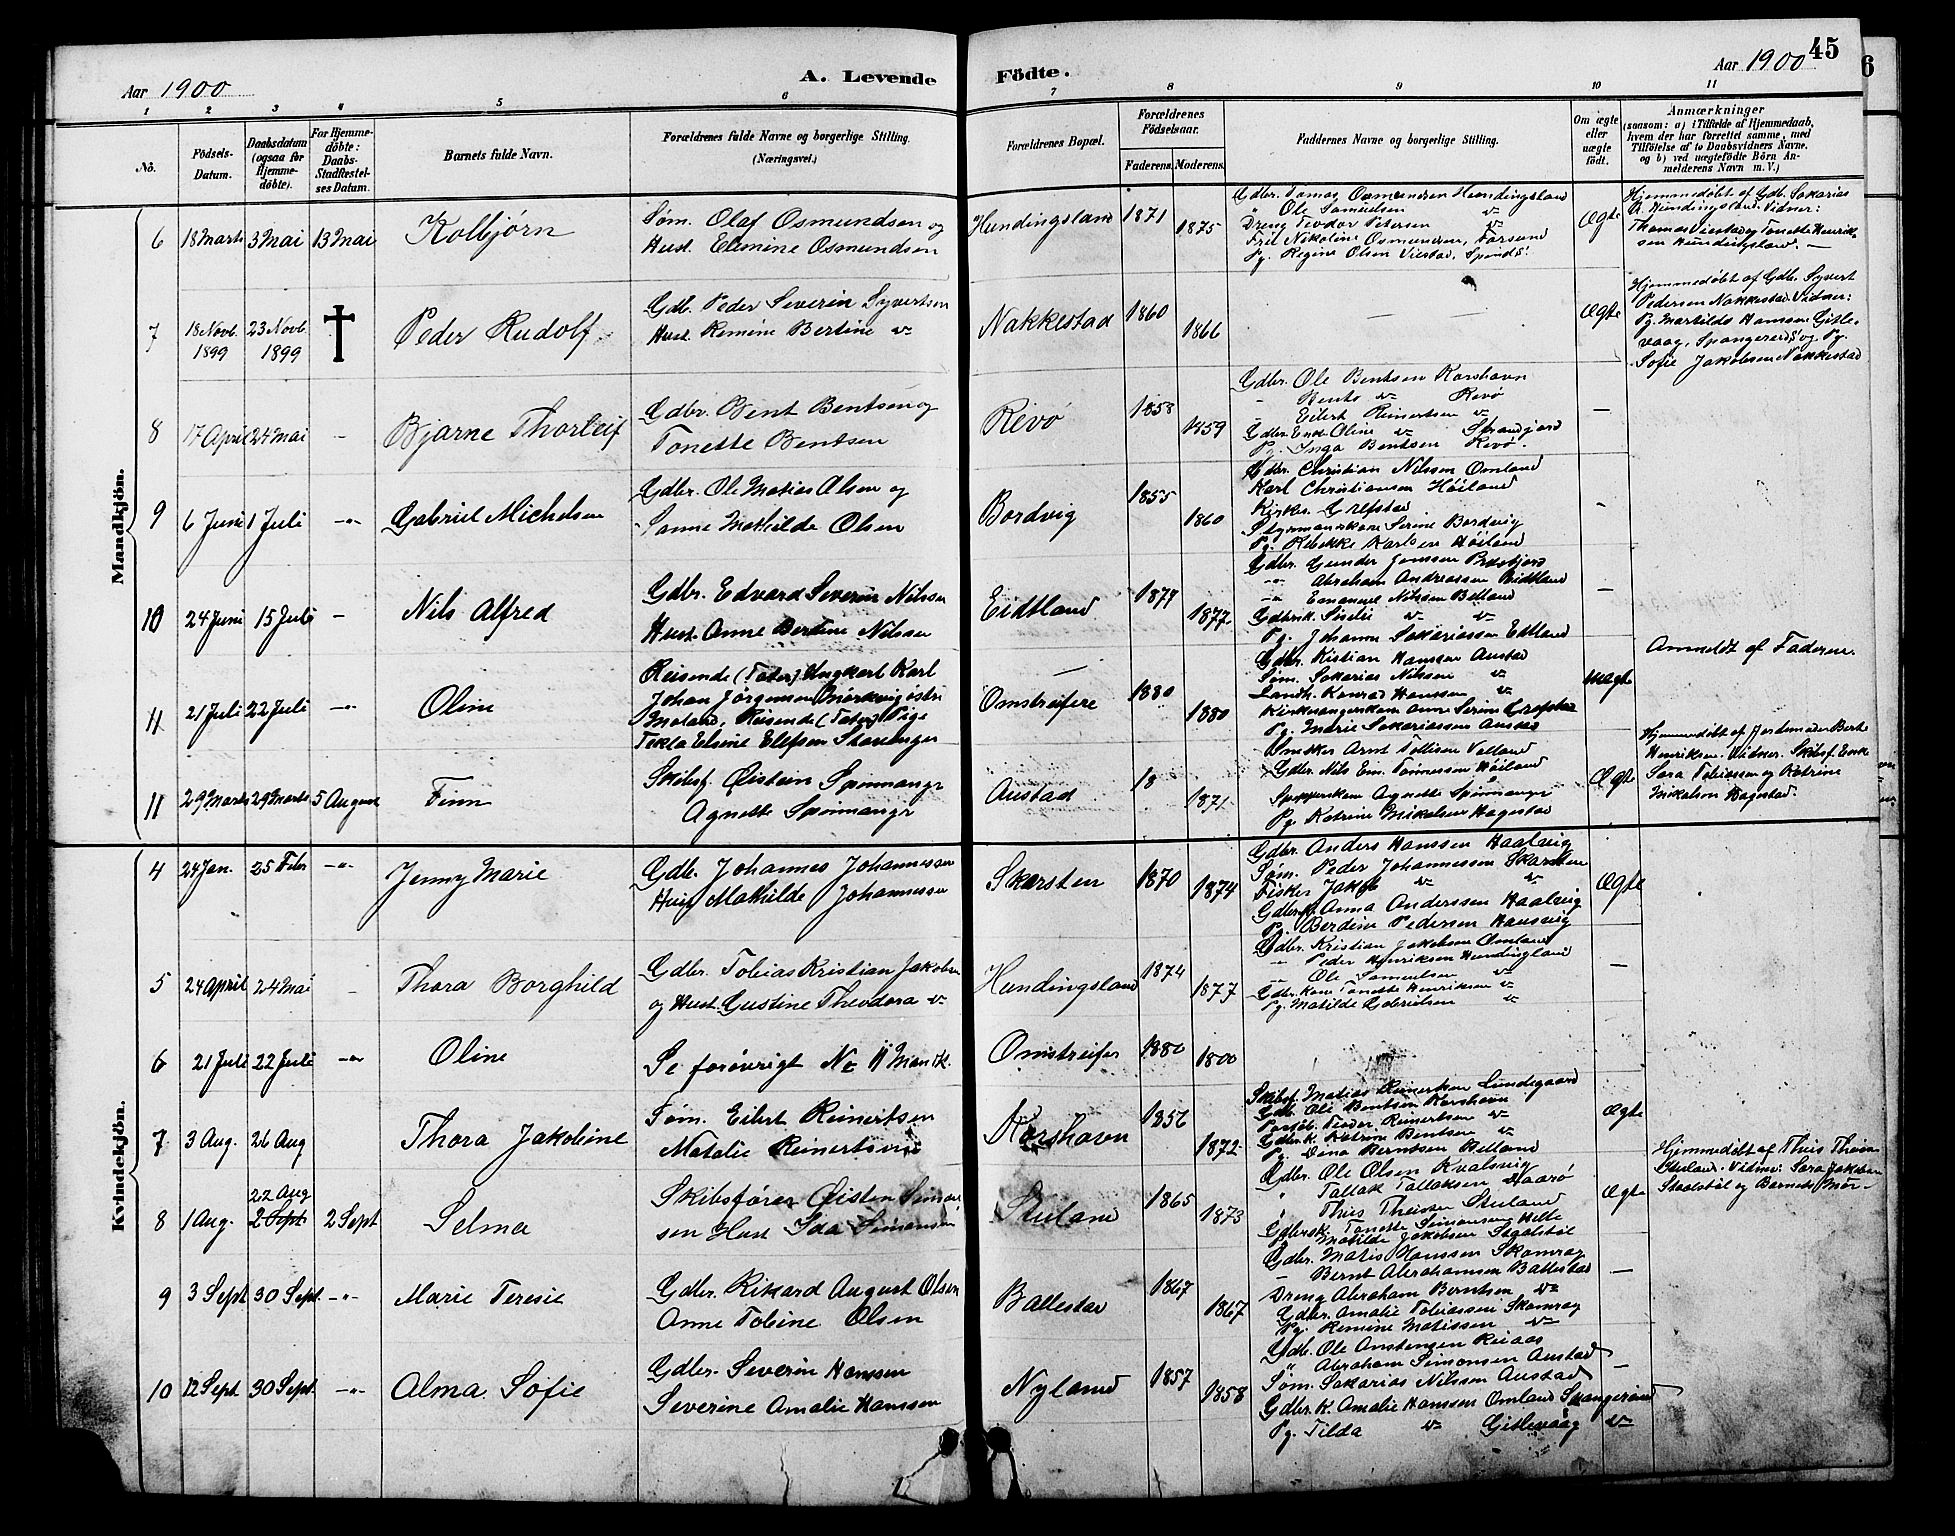 45
6
Aar 1900
A. Levende
Födte.
Aar 1900
1 2 3 4 5 6 7 8 9 10 11
No.
Födsels-
Datum.
Daabsdatum
(ogsaa for
Hjemme-
döbte).
For Hjemme-
döbte:
Daabs-
Stadfæstel-
ses Datum.
Barnets fulde Navn.
Forældrenes fulde Navne og borgerlige Stilling.
(Næringsvei.)
Forældrenes Bopæl.
Forældrenes
Födselsaar.
Faderens. Moderens.
Faddernes Navne og borgerlige Stilling.
Om ægte
eller
uægte
født.
Anmærkninger
(saasom: a) i Tilfælde af Hjemmedaab,
hvem der har forrettet samme, med
Tilföielse af to Daabsvidners Navne,
og b) ved uægtefödte Börn An-
melderens Navn m. V.)
Mandkjön.
6 18 Marts 3 Mai 13 Mai Kolbjørn
Søm. Olaf Osmundsen og
Hust. Elimine Osmundsen
Hundingsland 1871 1875
Gdbr. Tomas Osmundsen Hundingsland
" Ole Samuelsen "
Dreng Teodor Petersen "
Frk Nikoline Osmundsen, Farsund
Pg. Regine Olsen Viestad, Spind S:
Ægte
Hjemmedøbt af Gdb. Sakarias
Hundingsland. Vidner:
Thomas Viestad og Tonette Henrik-
sen Hundingsland. —
7 18 Novb. 1899 23 Novb. 1899 † Peder Rudolf
Gdb. Peder Severin Syvertsen
Hust. Remine Bertine "
Nakkestad 1860 1866
— — —
Ægte
Hjemmedøbt af Gdb. Syvert
Pedersen Nakkestad. Vidner:
Pg. Martilde Hansen Gitle-
vaag, Spangereid S og Pg.
Sofie Jakobsen Nakkestad
8 17 April 24 Mai - Bjarne Thorleif
Gdbr. Bent Bentsen og
Tonette Bentsen
Revø 1858 1859
Gdbr. Ole Bentsen Korshavn
" Bento " Revø
" Eilert Reinertsen "
Gdbr. Enk. Oline " Strandfjord
Pg. Inga Bentsen Revø.
—
9 6 Juni 1 Juli -"- Gabriel Michelsen
Gdbr. Ole Matias Olsen og
Sanne Mathilde Olsen
Bordvig 1855 1860
Gdbr. Christian Nilssen Omland
Karl Christiansen Høiland
Kirkes. Grefstad
Styrmandskone Serine Bordvig
Pg. Rebekke Karlsen Høiland
-
10 24 Juni 15 Juli - Nils Alfred
Gdbr. Edvard Severin Nilssen
Hust. Anne Bertine Nilssen
Eidtland 1879 1877
Gdbr. Gunder Jonssen
" Abraham Andreassen Eidtland
" Emanuel Nilssen Belland
Pg. Johanne Sakariassen Edland
—
11 21 Juli 22 Juli -"- Oline
Reisende (Tater) Ungkarl Karl
Johan Jørgensen
Reisende (Tater) Pige
Tekla Elsine Elefsen Stavanger
Omstreifere 1880 1880
Gdbr. Kistian Hanssen Austad
Søm. Sakarias Nilssen "
Landh. Konrad Hanssen "
Kirkesangerkone Anne Serine Grefstad
Pg. Marie Sakariassen Austad
uægte
Anmeldt af Faderen.
11 29 Marts 29 Marts 5 August Finn
Skibsf. Øistein Spønmangr
Agnette Spønmangr
Austad 18 1871
Snedker Arnt Tollisen Velland
Gdbr. Nils Em. Tønnessen Høiland
Skipperkone Agnette Spønmangr
Pg. Katrine Mikalsen Hagestad
Ægte
Hjemmedøbt af Jordemoder Berte
Henriksen. Vidner. Skibsf. Enke
Sara Tobiassen og Katrine
Mikalsen Hagestad.
Kvindekjön.
4 24 Jan. 25 Febr -"- Jenny Marie
Gdb. Johannes Johannessen
Hust Mathilde Johannessen
Skarsten 1870 1874
Gdbr. Anders Hanssen Haalvig
Søm. Peder Johannessen Skarsten
Fisker Jakob " "
Gdbrk. Anna Anderssen Haalvig
Pg. Berdine Pedersen Hausvig
Ægte
5 24 April 24 Mai - Thora Borghild
Gdbr. Tobias Kristian Jakobsen
og Hust. Gustine Theodora "
Hundingsland 1874 1877
Gdbr. Kristian Jakobsen Omland
" Peder Henriksen Hundingsland
" Ole Samuelsen "
Gdbr. Kone Tonette Henriksen "
Pg. Matilde Gabrielsen "
—
6 21 Juli 22 Juli -"- Oline
Se forøvrigt No 11 Mandk.
Omstreifer 1880 1800
7 3 Aug. 26 Aug Thora Jakobine
Søm. Eilert Reinertsen
Natalie Reinertsen
Korshavn 1856 1872
Skibsf. Matias Reinertsen Lundegaard
Gdb. Ole Bentsen Korshavn
Teodor Reinertsen "
Gdbrk. Katrine Bentsen "
Pg. Dina Berntsen Belland
Ægte
8 1 Aug. 22 Aug 2 Sept 2 Sept Selma
Skibsfører Øisten Simon-
sen Hust Ida Simonsen
Stuland 1865 1873
Gdbr. Ole Olsen Kvalsvig
" Tallak Tallaksen Vaarø
" Thiis Theisen Stuland
Gdbrsk. Tonette Simonsen Helle
Matilde Jakobsen Staalstøl
Ægte
Hjemmedøbt af Thiis
Stuland. Vidner: Sara Jakobsen
Staalstøl og Barnets Mor -
9 3 Sept 30 Sept. -"- Marie Teresie
Gdbr. Rikard August Olsen
Anne Tobine Olsen
Ballestad 1867 1867
Gdbr. Matis Hanssen Skomrag
" Bernt Abrahamsen Ballestad
Dreng Abraham Berntsen "
Gdbr. Amalie Tobiassen Skomrag
Pg. Remine Matissen "
—
10 12 Sept 30 Sept. -"- Alma Sofie
Gdbr. Severin Hanssen
Severine Amalie Hanssen
Nyland 1857 1858
Gdb. Ole Anstensen
" Abraham Simonsen Austad
Søm. Sakarias Nilssen Austad
Gdbr. K. Amalie Hanssen Omland Spangereid
Pg. Tilda " Gitlevaag "
—